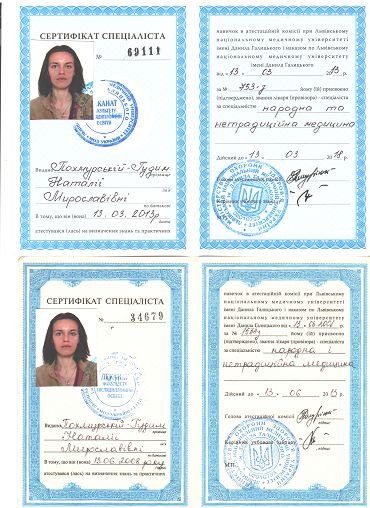 СЕРТИФІКАТ СПЕЦІАЛІСТА
№ 69111
ДЕКАНАТ
Видано Похмурській-Гудим
Наталії
ім'я
Мирославівні
по батькові
В тому, що він (вона) 13.03.2013р.
дата
атестувався (лась) на визначення знань та практичних
навичок в атестаційній комісії при Львівському
національному медичному університеті
імені Данила Галицького і наказом по Львівському
національному медичному університету
імені Данила Галицького
від «13» 03 2013р.
за № 753-з йому (їй) присвоєно
(підтверджено), звання лікаря (провізора) - спеціаліста
за спеціальністю народна та
нетрадиційна медицина
Дійсний до «13» 03 2018 р.
Голова атестаційної комісії
підпис
СЕРТИФІКАТ СПЕЦІАЛІСТА
№ 34679
Видано Похмурській-Гудим
прізвище
Наталії
ім'я
Мирославівні
по батькові
В тому, що він (вона) 13.06.2008 року
дата
атестувався (лась) на визначення знань та практичних
навичок в атестаційній комісії при Львівському
національному медичному університеті
імені Данила Галицького і наказом по Львівському
національному медичному університету
імені Данила Галицького від
за № йому (їй) присвоєно
(підтверджено), звання лікаря (провізора) - спеціаліста
за спеціальністю народна і
нетрадиційна медицина
Дійсний до «13» 06 2013 р.
Голова атестаційної комісії
підпис
Керівник учбового закладу
підпис
М.П.